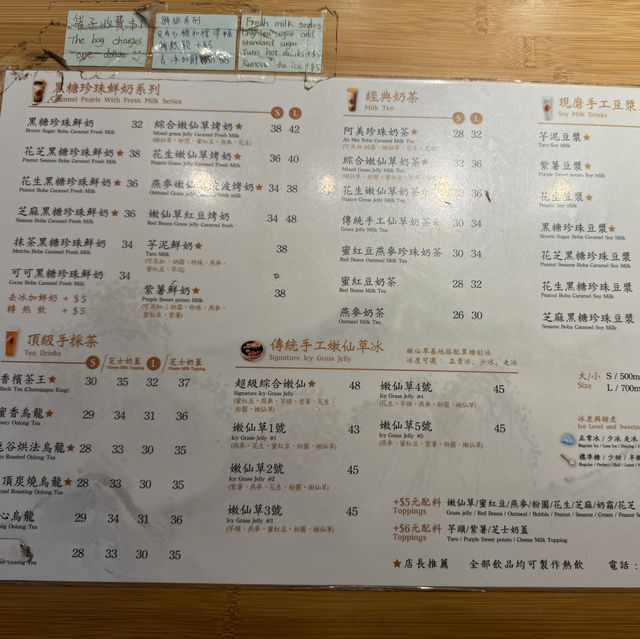 袋子收費$1
The bag charges
one dollar
鮮奶系列
Fresh milk series
Only low sugar and
standard sugar
Turn hot drinks+$5
Remove the ice+$5
黑糖珍珠鮮奶系列
Caramel Pearls With Fresh Milk Series
S L
黑糖珍珠鮮奶 32
Brown Sugar Boba Caramel Fresh Milk
花芝黑糖珍珠鮮奶★ 38
Peanut Sesame Boba Caramel Fresh Milk
花生黑糖珍珠鮮奶★ 36
Peanut Boba Caramel Fresh Milk
芝麻黑糖珍珠鮮奶★ 36
Sesame Boba Caramel Fresh Milk
抹茶黑糖珍珠鮮奶 34
Matcha Boba Caramel Fresh Milk
可可黑糖珍珠鮮奶 34
Cocoa Boba Caramel Fresh Milk
去冰加鮮奶 + $5
轉熱飲 + $5
綜合嫩仙草烤奶★ 38 42
Mixed grass Jelly Caramel Fresh Milk
花生嫩仙草烤奶★ 36 40
Peanut Grass Jelly Caramel Fresh Milk
34 38
嫩仙草紅豆烤奶 34 48
Red Beans Grass Jelly Caramel Fresh
芋泥鮮奶★ 38
Taro Milk
(可另加：奶霜、珍珠、燕麥、
蜜紅豆、芋泥)
紫薯鮮奶★ 38
Purple Sweet potato Milk
(可另加：奶霜、珍珠、燕麥、
蜜紅豆、紫薯)
經典奶茶
Milk Tea
S L
阿美珍珠奶茶★ 28 32
Ah Mei Boba Caramel Milk Tea
綜合嫩仙草奶茶★ 32 36
Mixed Grass Jelly Milk Tea
花生嫩仙草奶茶★ 32 36
Peanut Grass Jelly Milk Tea
傳統手工仙草奶茶★ 30 34
Grass Jelly Milk Tea
蜜紅豆燕麥珍珠奶茶 30 34
Red Beans Oatmeal Milk Tea
蜜紅豆奶茶 28 32
Red Beans Milk Tea
燕麥奶茶 26 30
Oatmeal Milk Tea
現磨手工豆漿
Soy Milk Drinks
芋泥豆漿★
Taro Soy Milk
紫薯豆漿★
Purple Sweet potato Soy Milk
花生豆漿★
Peanut Soy Milk
黑糖珍珠豆漿★
Brown Sugar Boba Caramel Soy Milk
花芝黑糖珍珠豆漿
Peanut Sesame Boba Caramel Soy Milk
花生黑糖珍珠豆漿
Peanut Boba Caramel Soy Milk
芝麻黑糖珍珠豆漿
Sesame Boba Caramel Soy Milk
頂級手採茶
Tea Drinks
S 芝士奶蓋 L 芝士奶蓋
香檳茶王★ 30 35 32 37
Black Tea (Champagne King)
蜜香烏龍★ 29 34 31 36
Honey Oolong Tea
谷烘法烏龍★ 28 33 30 35
Roasted Oolong Tea
頂炭燒烏龍★ 28 33 30 35
Charcoal Roasting Oolong Tea
心烏龍 29 34 31 36
Oolong Tea
28 33 30 35
Oolong Tea
傳統手工嫩仙草冰
Signature Icy Grass Jelly
嫩仙草基地搭配黑糖刨冰
冰度可選： 正常冰、少冰、走冰
超級綜合嫩仙★ 48
Signature Icy Grass Jelly
(蜜紅豆、燕麥、芋頭、紫薯、花生、
粉圓、嫩仙草)
嫩仙草1號 43
Icy Grass Jelly #1
(燕麥、花生、蜜紅豆、粉圓、嫩仙草)
嫩仙草2號 45
Icy Grass Jelly #2
(紫薯、燕麥、花生、粉圓、嫩仙草)
嫩仙草3號 45
Icy Grass Jelly #3
(芋頭、燕麥、蜜紅豆、粉圓、嫩仙草)
嫩仙草4號 45
Icy Grass Jelly #4
(花生、芋頭、紫薯、粉圓、嫩仙草)
嫩仙草5號 45
Icy Grass Jelly #5
(燕麥、蜜紅豆、紫薯、粉圓、嫩仙草)
大/小 S / 500m
Size L / 700m
冰度與甜度
Ice Level and Sweetne
正常冰 / 少冰 走冰
標準糖 / 少甜 / 半糖
+$5元配料 嫩仙草/蜜紅豆/燕麥/粉圓/花生/芝麻/奶霜/花芝
Toppings Grass jelly / Red Beans / Oatmeal / Bubble / Peanut / Sesame / Cream / Peanut Se
+$6元配料 芋頭/紫薯/芝士奶蓋
Toppings Taro / Purple Sweet potato / Cheese Milk Topping
★店長推薦 全部飲品均可製作熱飲 電話：